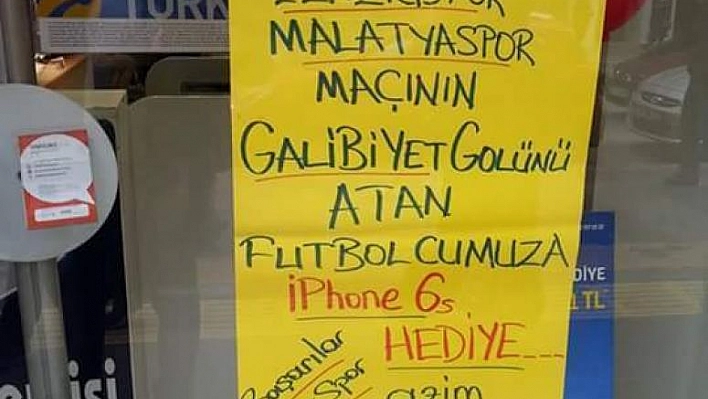 MALATYASPOR
MAÇININ
GALİBİYET GOLÜNÜ
ATAN
FUTBOLCUMUZA
iPhone 6s
HEDİYE...
Başarılar
Spor
azim
TURK
DİYE
TL